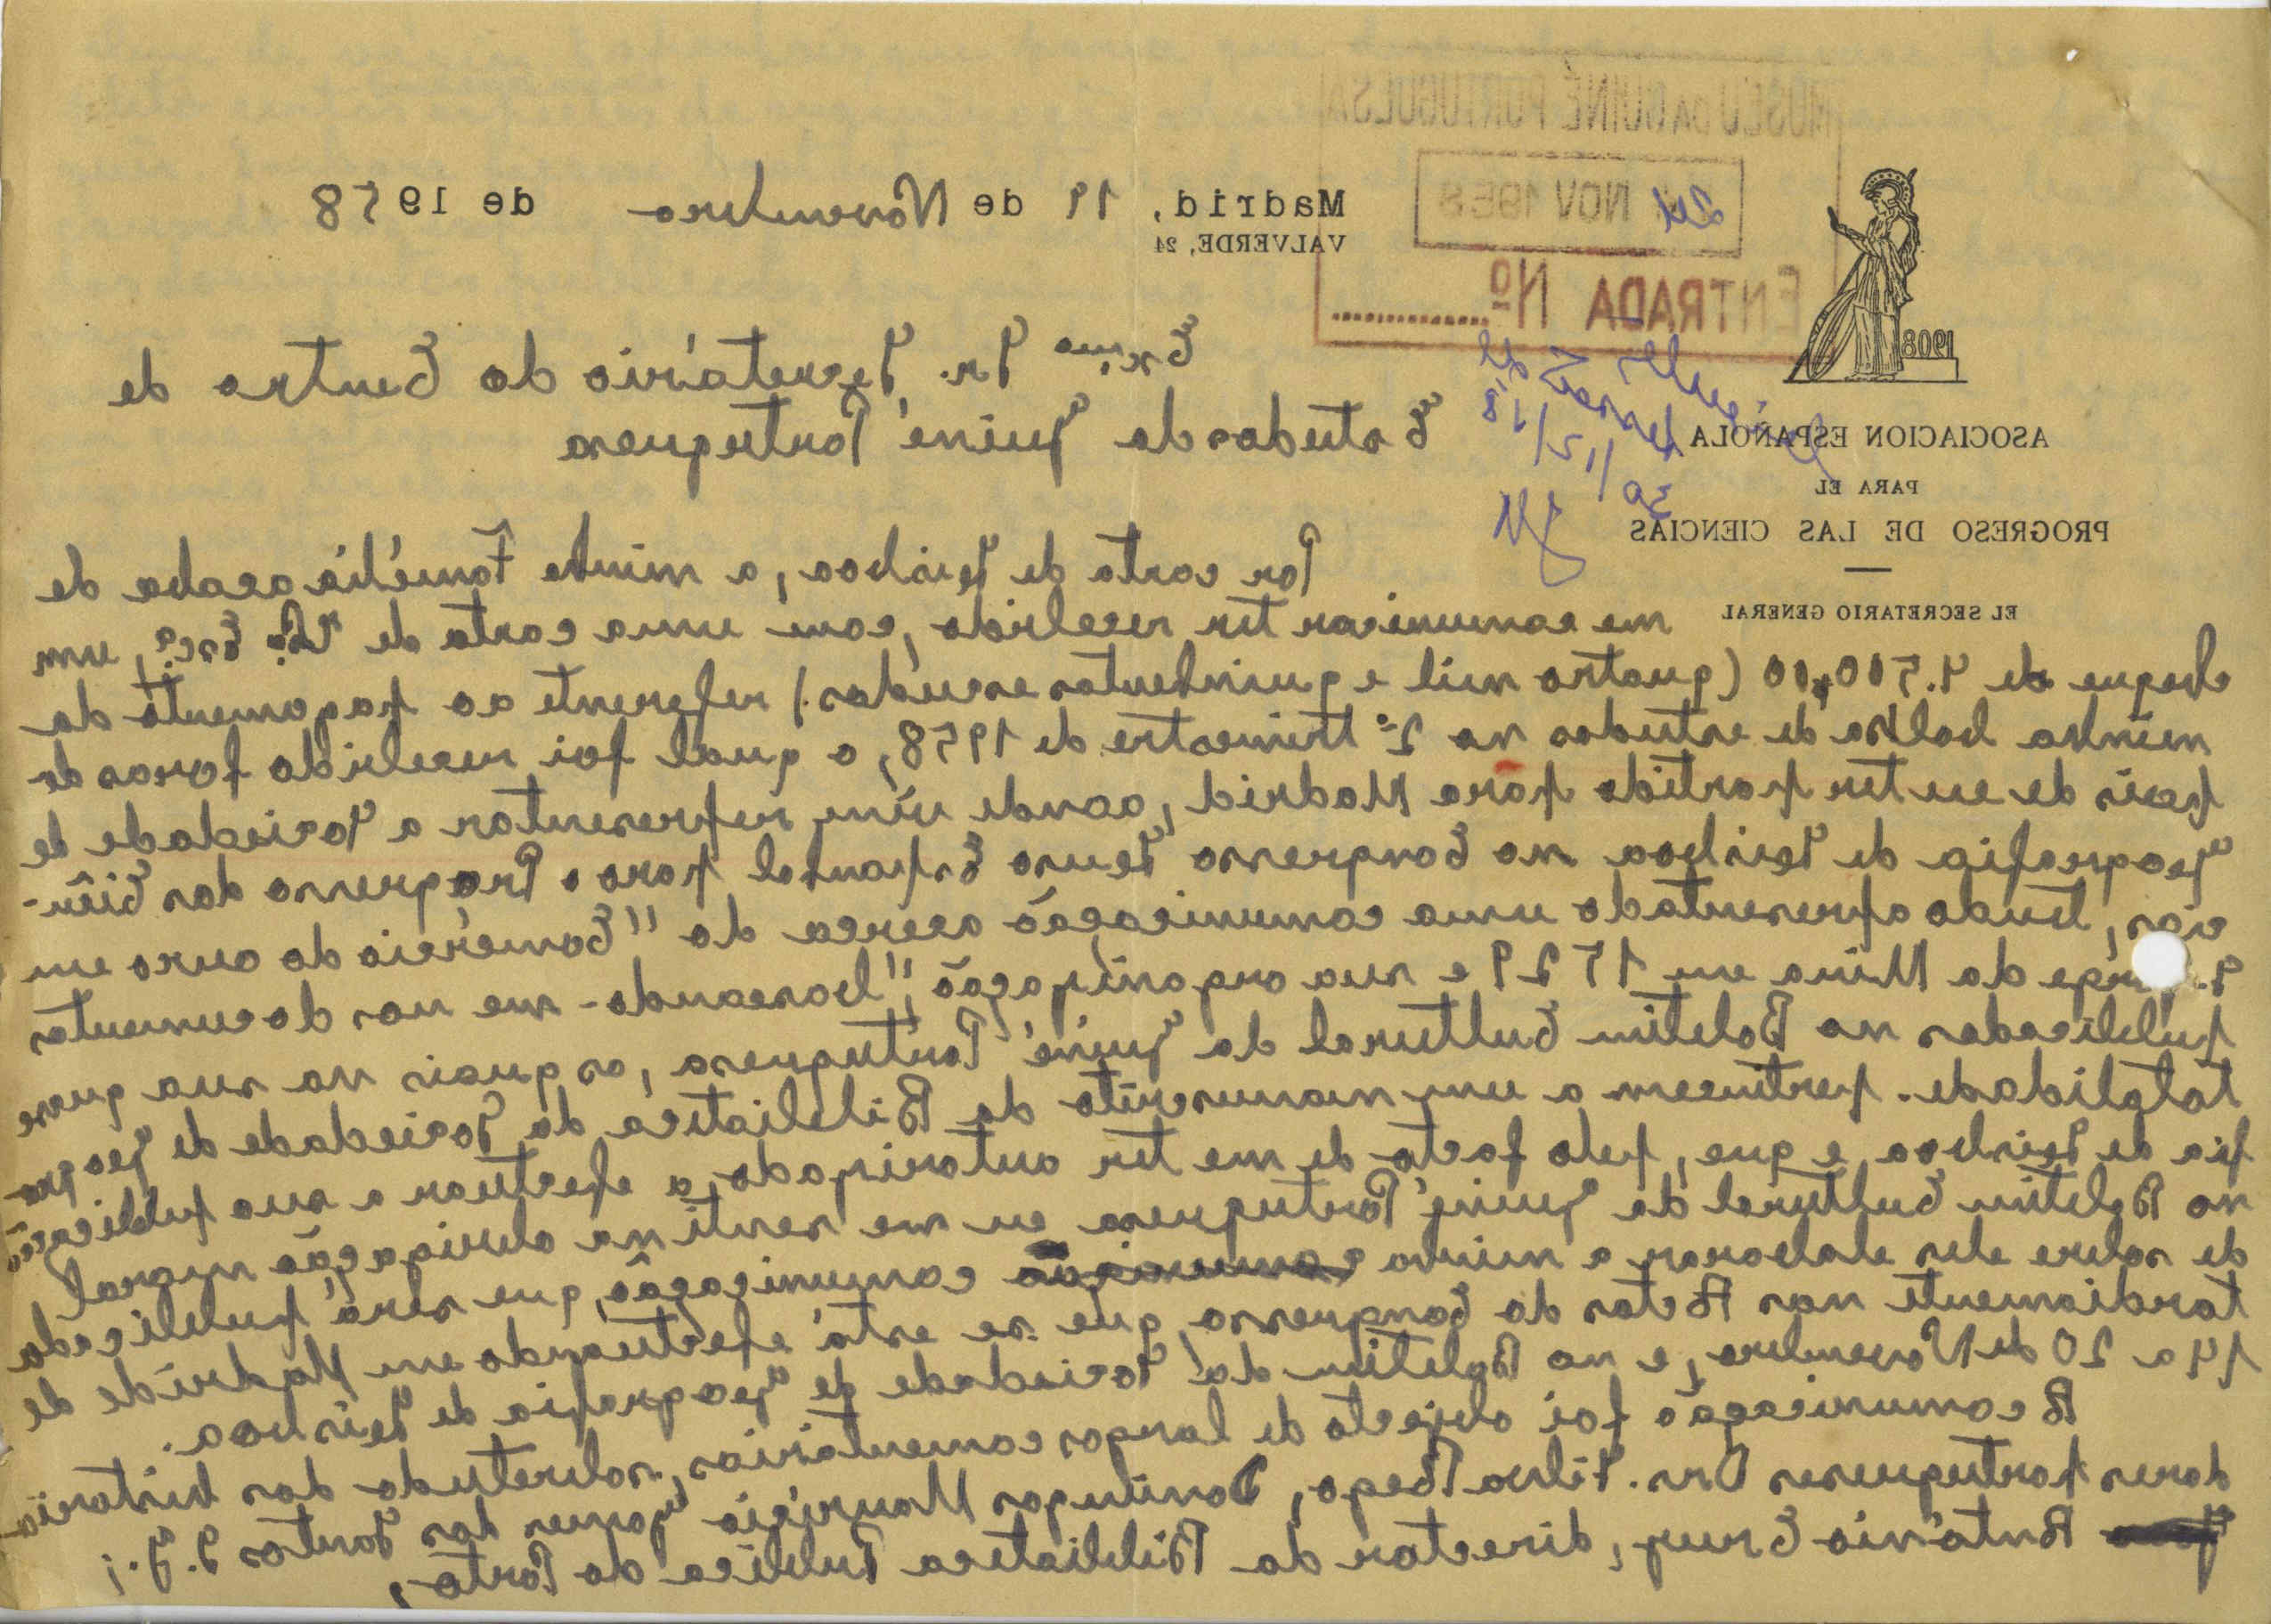 MUSEU DA GUINÉ PORTUGUESA
24 NOV 1958
ENTRADA Nº
1908
ASOCIACION ESPAÑOLA
PARA EL
PROGRESO DE LAS CIENCIAS
EL SECRETARIO GENERAL
30/12/58
Madrid, 19 de Novembro de 1958
VALVERDE, 24
Exmo Sr. Secretário do Centro de
Estudos da Guiné Portuguesa
Por carta de Lisboa, a minha família acaba de
me comunicar ter recebido, com uma carta de Vª. Excª, um
cheque de 4.500,00 (quatro mil e quinhentos escudos) referente ao pagamento da
minha bolsa de estudos no 2º trimestre de 1958, o qual foi recebido poucos de
pois de eu ter partido para Madrid, aonde vim representar a Sociedade de
Geografia de Lisboa no Congresso Luso Espanhol para o Progresso das Ciên-
cias, tendo apresentado uma comunicação acerca do "Comércio do ouro em
S. Jorge da Mina em 1529 e sua organização", baseando-me nos documentos
publicados no Boletim Cultural da Guiné Portuguesa, os quais na sua quase
totalidade pertencem a um manuscrito da Biblioteca da Sociedade de Geogra
fia de Lisboa e que, pelo facto de me ter autorizado a efectuar a sua publicação
no Boletim Cultural da Guiné Portuguesa eu me senti na obrigação moral
de sobre eles elaborar a minha comunicação, que será publicada
tardiamente nas Actas do Congresso, que se está efectuando em Madrid de
14 a 20 de Novembro, e no Boletim da Sociedade de Geografia de Lisboa.
A comunicação foi objecto de largos comentários, sobretudo dos historia
dores portugueses Drs. Silva Rego, Domingos Maurício Gomes dos Santos S.J.,
António Cruz, director da Biblioteca Publica do Porto,